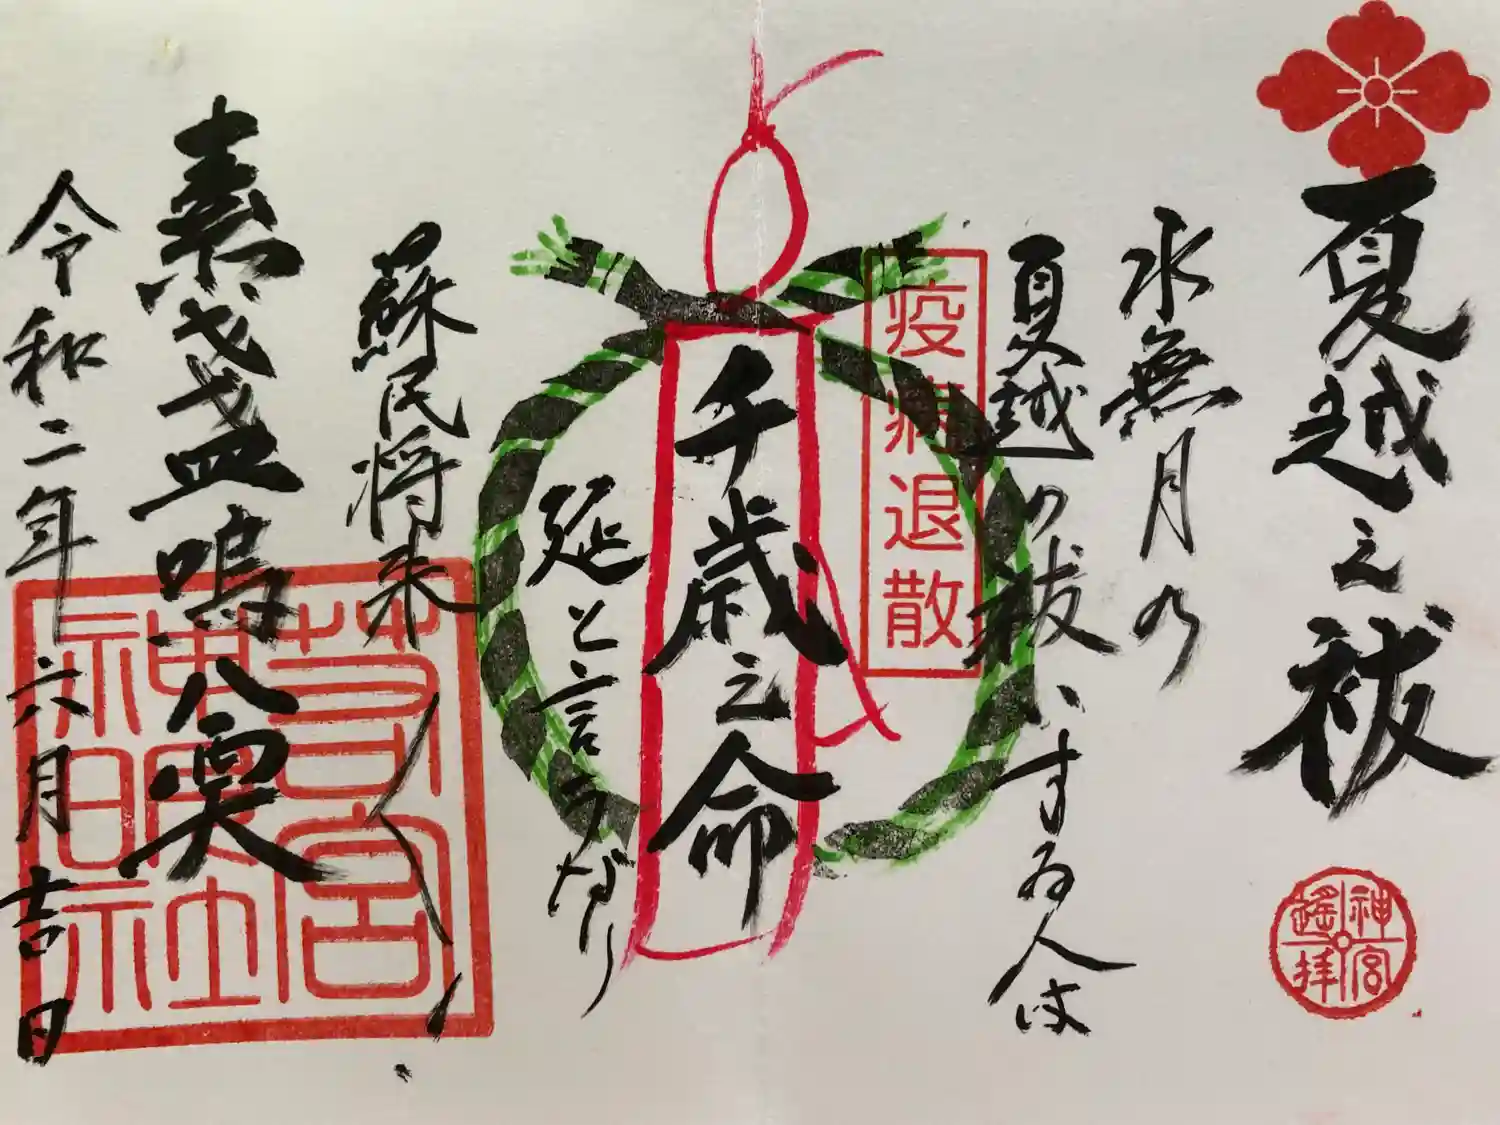 夏越之祓
神宮
遙拝
水無月の
夏越の祓いする人は
疫病退散
千歳之命
延と言うなり
蘇民将来〱
素盞嗚尊
令和二年六月吉日